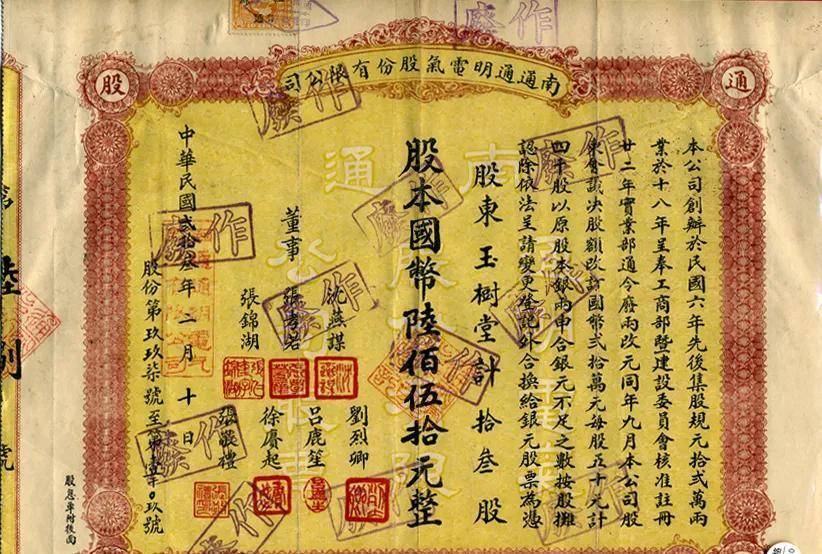 南通通明電氣股份有限公司
通
股
作廢
本公司創辦於民國六年先後集股規元拾貳萬兩
業於十八年呈奉工商部暨建設委員會核准註冊
廿二年實業部通令廢兩改元同年九月本公司股
東會議決股額改計國幣貳拾萬元每股五十元計
四千股以原股本銀兩申合銀元不足之數按股攤
認除依法呈請變更登記外合換給銀元股票為憑
股東玉樹堂計拾叁股
股本國幣陸佰伍拾元整
董事
沈燕謀
張孝若
張錦湖
劉烈卿
呂鹿笙
徐賡起
張敬禮
中華民國貳拾叁年二月十日
股份第玖玖柒號至第壹千〇玖號
股息單附後面
作廢
作廢
作廢
作廢
作廢
作廢
作廢
作廢
作廢